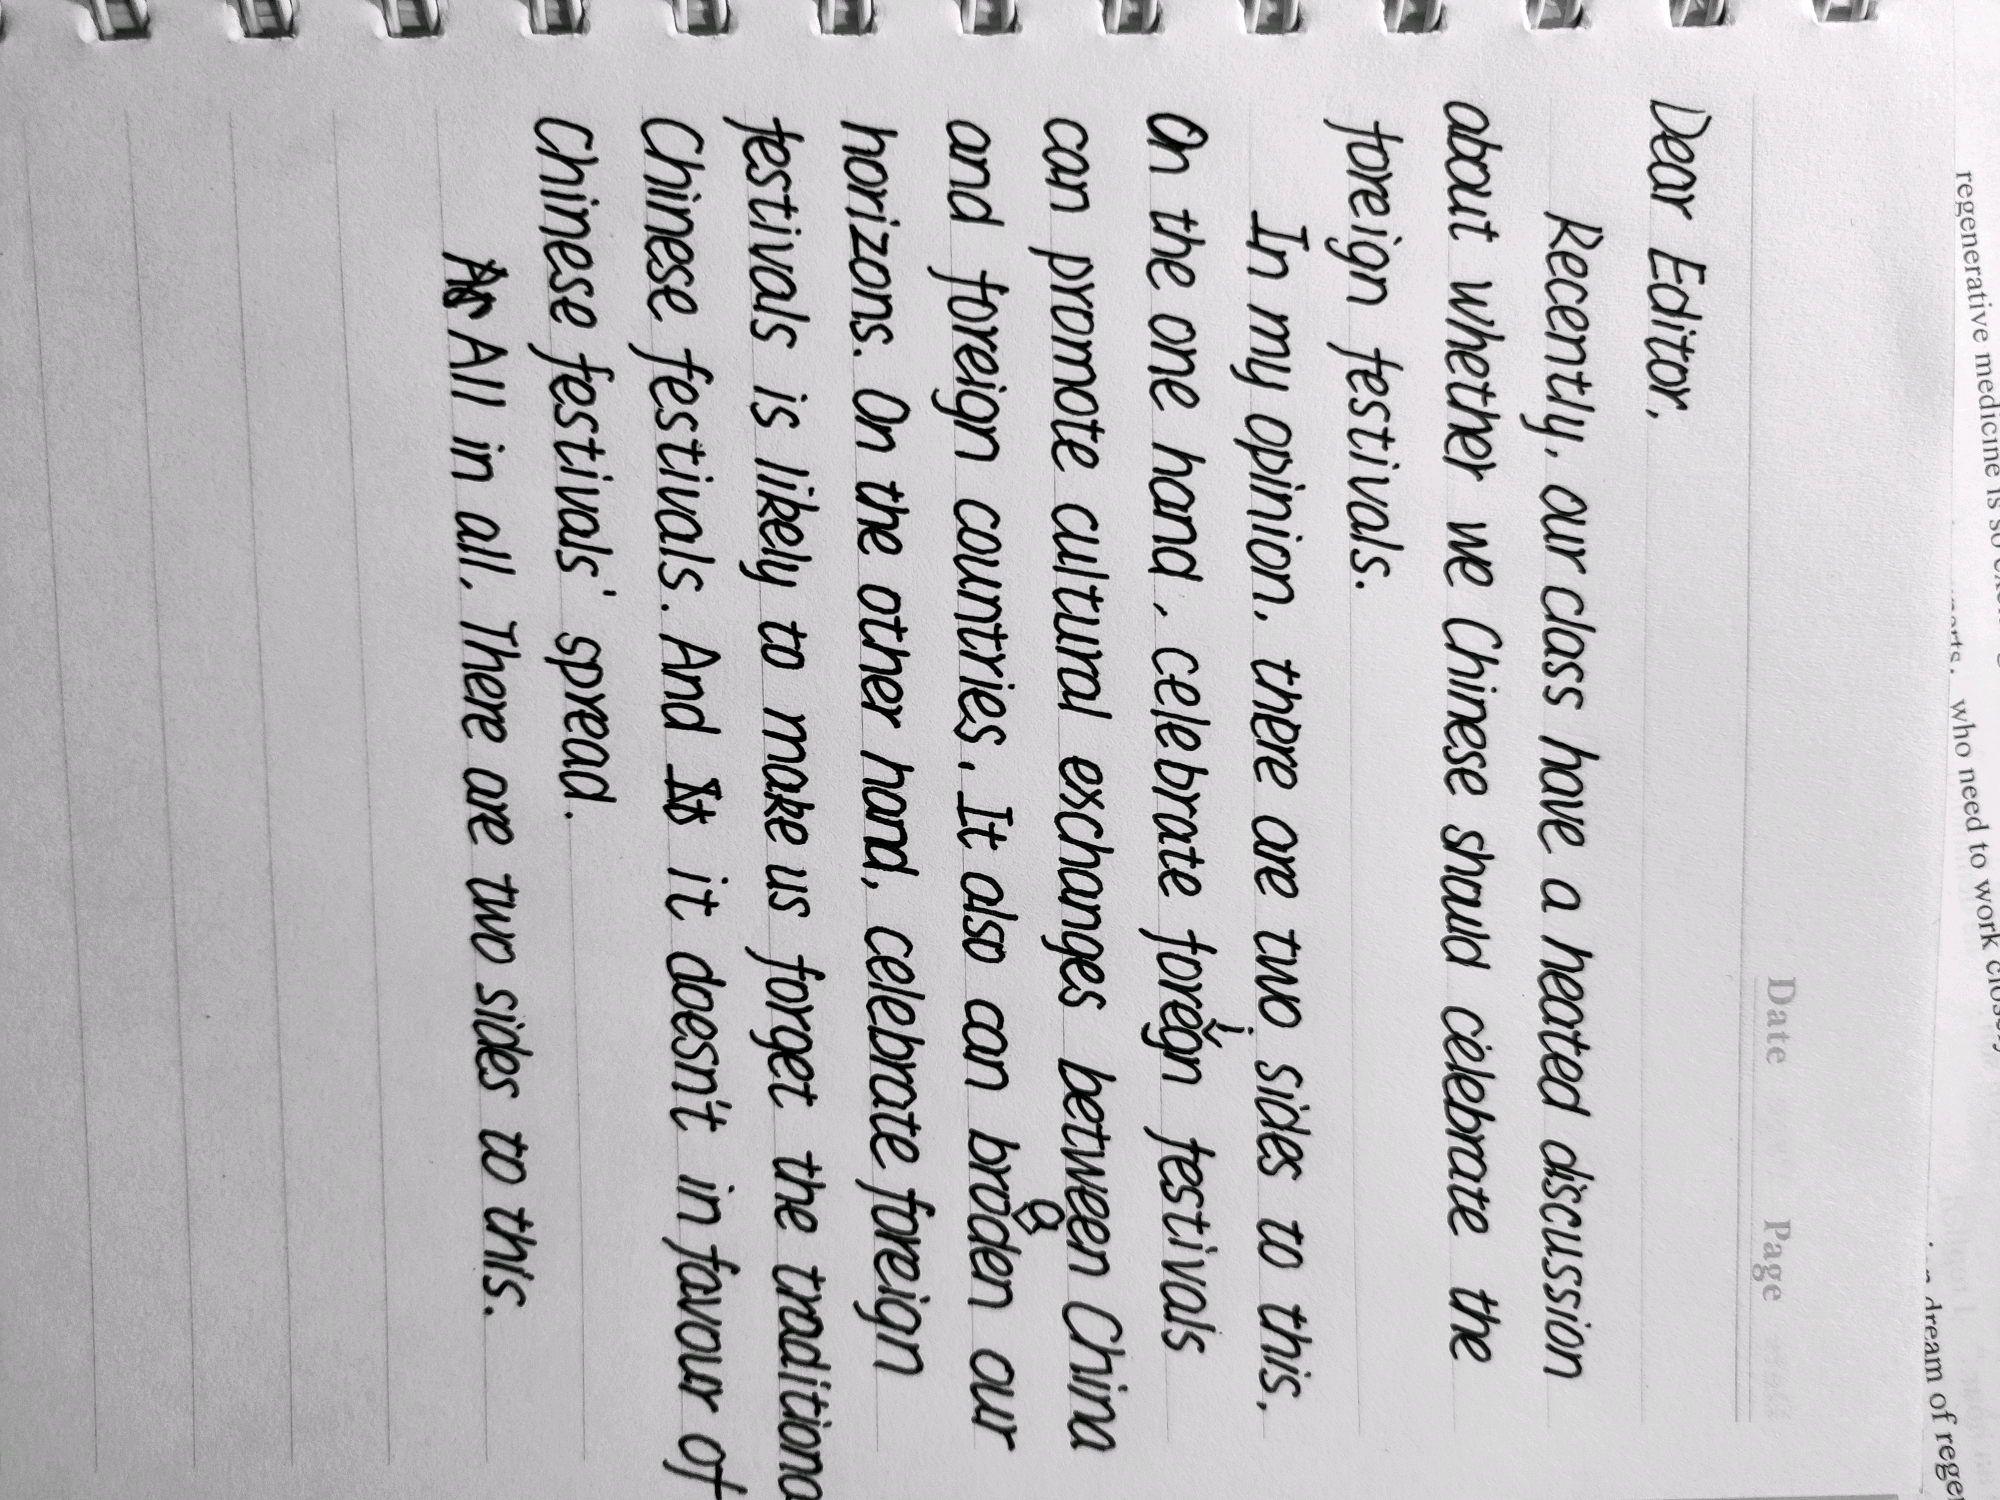 regenerative medicine is so
who need to work closely
dream of rege
Date Page
Dear Editor,
Recently, our class have a heated discussion
about whether we Chinese should celebrate the
foreign festivals.
In my opinion, there are two sides to this.
On the one hand, celebrate foreign festivals
can promote cultural exchanges between China
and foreign countries. It also can broaden our
horizons. On the other hand, celebrate foreign
festivals is likely to make us forget the traditiona
Chinese festivals. And it doesn't in favour of
Chinese festivals' spread.
All in all, There are two sides to this.